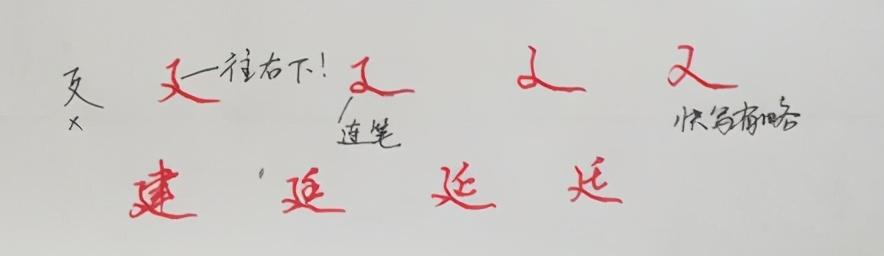 廴 × 廴 一往右下! 廴 廴 廴
连笔 快写有略
建 廷 延 廷